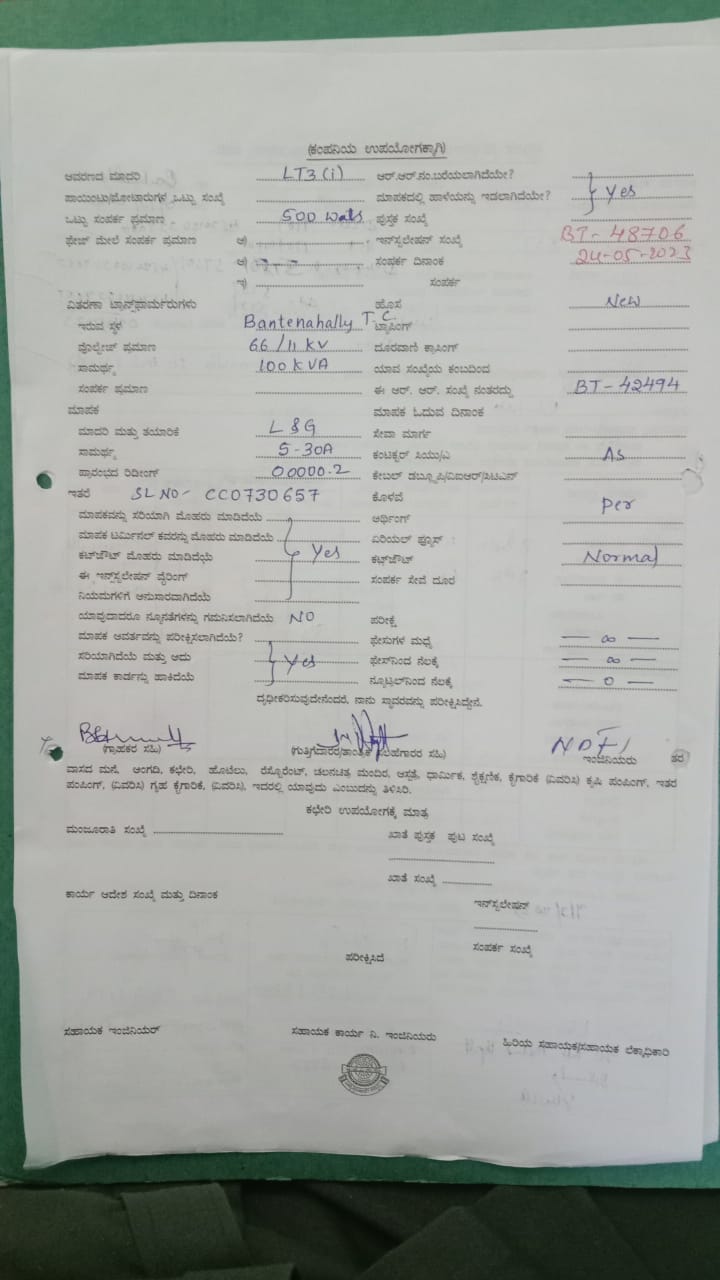 (ಕಂಪನಿಯ ಉಪಯೋಗಕ್ಕಾಗಿ)
ಆವರಣದ ಮಾದರಿ LT3(i) ಆರ್.ಆರ್.ನಂ.ಬರೆಯಲಾಗಿದೆಯೇ?
ಪಾಯಿಂಟು/ಮೋಟಾರುಗಳ ಒಟ್ಟು ಸಂಖ್ಯೆ ಮಾಪಕದಲ್ಲಿ ಹಾಳೆಯನ್ನು ಇಡಲಾಗಿದೆಯೇ? Yes
ಒಟ್ಟು ಸಂಪರ್ಕ ಪ್ರಮಾಣ 500 wats ಪುಸ್ತಕ ಸಂಖ್ಯೆ
ಫೇಜ್ ಮೇಲೆ ಸಂಪರ್ಕ ಪ್ರಮಾಣ ಅ) ಇನ್‌ಸ್ಟಲೇಷನ್ ಸಂಖ್ಯೆ BT-48706
ಆ) ಸಂಪರ್ಕ ದಿನಾಂಕ 24-05-2023
ಇ) ಸಂಪರ್ಕ
ವಿತರಣಾ ಟ್ರಾನ್ಸ್‌ಫಾರ್ಮರುಗಳು ಹೊಸ New
ಇರುವ ಸ್ಥಳ Bantenahally T.C. ಟ್ಯಾಪಿಂಗ್
ವೊಲ್ಟೇಜ್ ಪ್ರಮಾಣ 66/11 KV ದೂರವಾಣಿ ಕ್ರಾಸಿಂಗ್
ಸಾಮರ್ಥ್ಯ 100 KVA ಯಾವ ಸಂಖ್ಯೆಯ ಕಂಬದಿಂದ
ಸಂಪರ್ಕ ಪ್ರಮಾಣ ಈ ಆರ್. ಆರ್. ಸಂಖ್ಯೆ ನಂತರದ್ದು BT-42494
ಮಾಪಕ ಮಾಪಕ ಓದುವ ದಿನಾಂಕ
ಮಾದರಿ ಮತ್ತು ತಯಾರಿಕೆ L&G ಸೇವಾ ಮಾರ್ಗ
ಸಾಮರ್ಥ್ಯ 5-30A ಕಂಟಕ್ಟರ್ ಸಿಯು/ಎ As
ಪ್ರಾರಂಭದ ರಿಡೀಂಗ್ 00000.2 ಕೇಬಲ್ ಡಬ್ಲ್ಯೂಪಿ/ವಿಐಆರ್/ಸಿಟಿಎಸ್
ಇತರೆ SL NO- CC0730657 ಕೊಳವೆ
ಮಾಪಕವನ್ನು ಸರಿಯಾಗಿ ಮೊಹರು ಮಾಡಿದೆಯೆ ಆರ್ಥಿಂಗ್ per
ಮಾಪಕ ಟರ್ಮಿನಲ್ ಕವರನ್ನು ಮೊಹರು ಮಾಡಿದೆಯೆ ಏರಿಯಲ್ ಫ್ಯೂಸ್
ಕಟ್‌ಔಟ್ ಮೊಹರು ಮಾಡಿದೆಯೆ Yes ಕಟ್ಔಟ್ Normal
ಈ ಇನ್‌ಸ್ಟಲೇಷನ್ ವೈರಿಂಗ್ ಸಂಪರ್ಕ ಸೇವೆ ದೂರ
ನಿಯಮಗಳಿಗೆ ಅನುಸಾರವಾಗಿದೆಯೆ
ಯಾವುದಾದರೂ ನ್ಯೂನತೆಗಳನ್ನು ಗಮನಿಸಲಾಗಿದೆಯೆ NO ಪರೀಕ್ಷೆ
ಮಾಪಕ ಆವರ್ತವನ್ನು ಪರೀಕ್ಷಿಸಲಾಗಿದೆಯೆ? ಫೇಸುಗಳ ಮಧ್ಯೆ — ∞ —
ಸರಿಯಾಗಿದೆಯೆ ಮತ್ತು ಅದು Yes ಫೇಸ್‌ನಿಂದ ನೆಲಕ್ಕೆ — ∞ —
ಮಾಪಕ ಕಾರ್ಡನ್ನು ಹಾಕಿದೆಯೆ ನ್ಯೂಟ್ರಲ್‌ನಿಂದ ನೆಲಕ್ಕೆ — 0 —
ದೃಢೀಕರಿಸುವುದೇನೆಂದರೆ, ನಾನು ಸ್ಥಾವರವನ್ನು ಪರೀಕ್ಷಿಸಿದ್ದೇನೆ.
(ಗ್ರಾಹಕರ ಸಹಿ) ಸಹಿ) ಇಂಜಿನಿಯರು
ವಾಸದ ಮನೆ, ಅಂಗಡಿ, ಕಛೇರಿ, ಹೊಟೆಲು, ರೆಸ್ಟೊರೆಂಟ್, ಚಲನಚಿತ್ರ ಮಂದಿರ, ಆಸ್ಪತ್ರೆ, ಧಾರ್ಮಿಕ, ಶೈಕ್ಷಣಿಕ, ಕೈಗಾರಿಕೆ (ವಿವರಿಸಿ) ಕೃಷಿ ಪಂಪಿಂಗ್, ಇತರ
ಪಂಪಿಂಗ್, (ವಿವರಿಸಿ) ಗೃಹ ಕೈಗಾರಿಕೆ, (ವಿವರಿಸಿ), ಇದರಲ್ಲಿ ಯಾವುದು ಎಂಬುದನ್ನು ತಿಳಿಸಿರಿ.
ಕಛೇರಿ ಉಪಯೋಗಕ್ಕೆ ಮಾತ್ರ
ಮಂಜೂರಾತಿ ಸಂಖ್ಯೆ ಖಾತೆ ಪುಸ್ತಕ ಪುಟ ಸಂಖ್ಯೆ
ಖಾತೆ ಸಂಖ್ಯೆ
ಕಾರ್ಯ ಆದೇಶ ಸಂಖ್ಯೆ ಮತ್ತು ದಿನಾಂಕ
ಇನ್‌ಸ್ಟಲೇಷನ್
ಸಂಪರ್ಕ ಸಂಖ್ಯೆ
ಪರೀಕ್ಷಿಸಿದೆ
ಸಹಾಯಕ ಇಂಜಿನಿಯರ್ ಸಹಾಯಕ ಕಾರ್ಯ ನಿ. ಇಂಜಿನಿಯರು ಹಿರಿಯ ಸಹಾಯಕ/ಸಹಾಯಕ ಲೆಕ್ಕಾಧಿಕಾರಿ